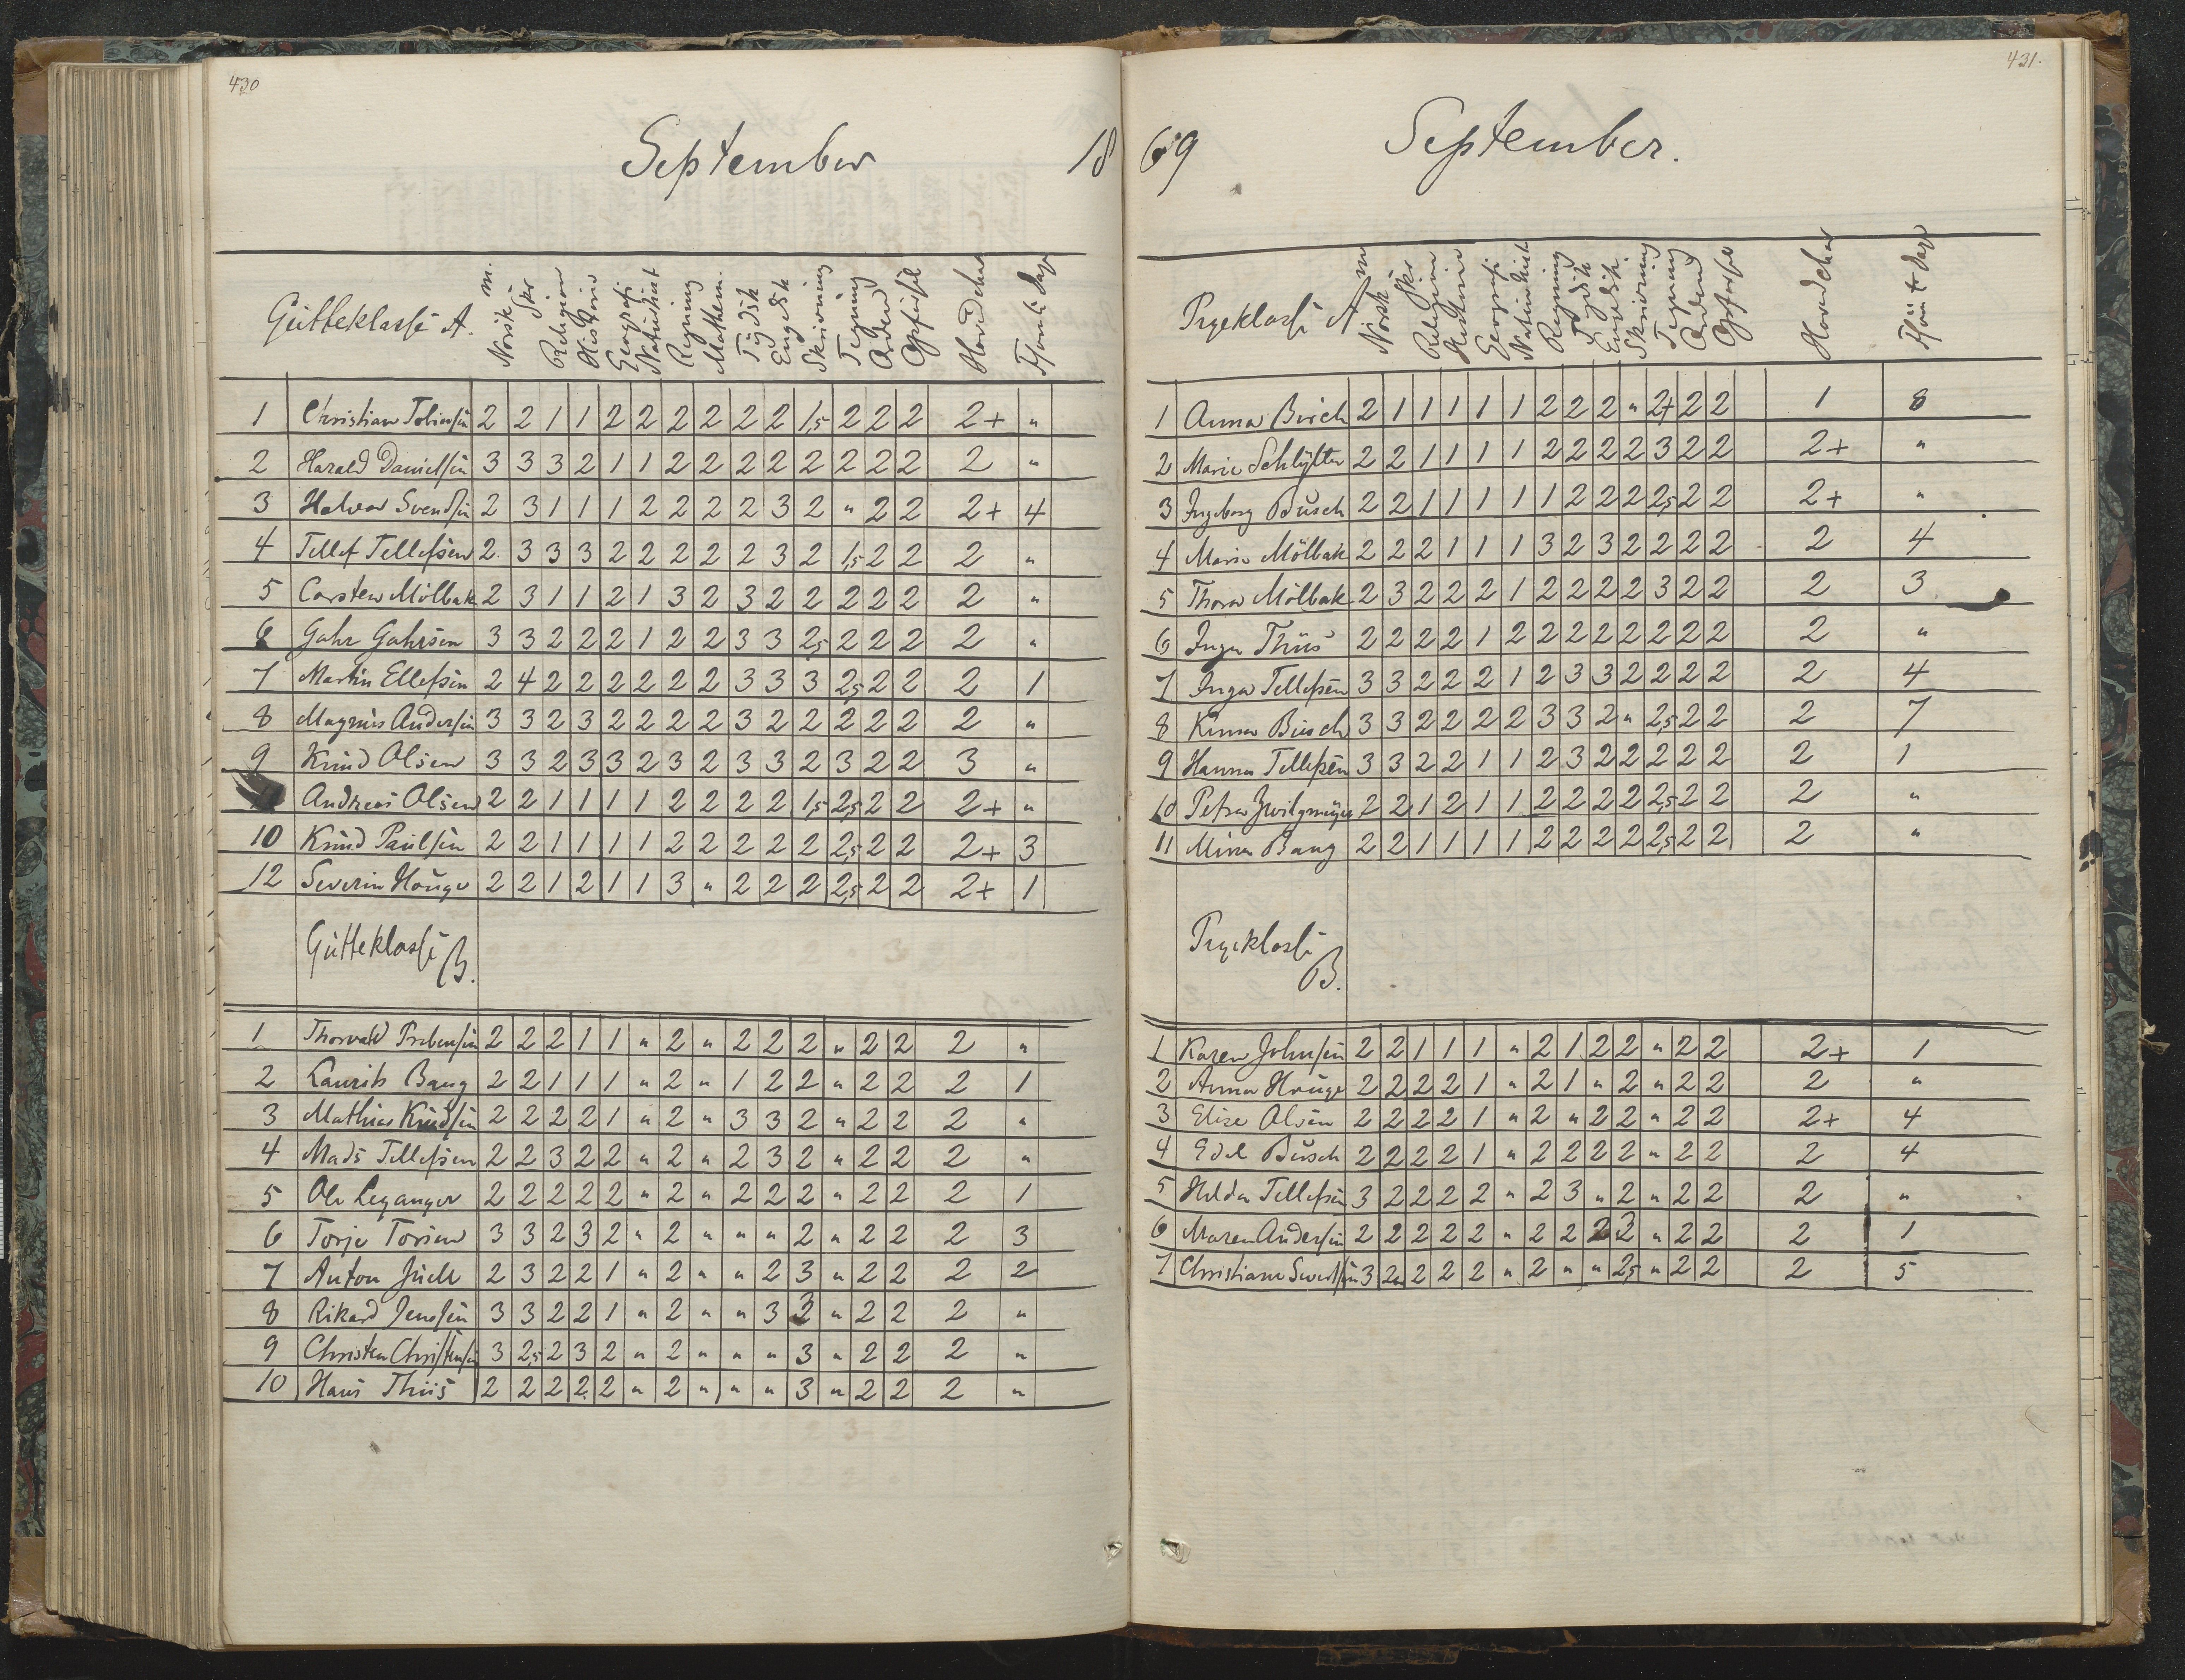 430
September 18
Gutteklasse A. Norsk m. Skr Religion Historie Geografi Naturhist Regning Mathem. Tydsk Engelsk Skrivning Tegning Orden Opførsel Hovedchar Forsøm. Dage
1 Christian Tobiesen 2 2 1 1 2 2 2 2 2 2 1,5 2 2 2 2+ "
2 Harald Danielsen 3 3 3 2 1 1 2 2 2 2 2 2 2 2 2 "
3 Halvor Svendsen 2 3 1 1 1 2 2 2 2 3 2 " 2 2 2+ 4
4 Tellef Tellefsen 2 3 3 3 2 2 2 2 2 3 2 1,5 2 2 2 "
5 Carsten Mölbak 2 3 1 1 2 1 3 2 3 2 2 2 2 2 2 "
6 Gahr Gahrsen 3 3 2 2 2 1 2 2 3 3 2,5 2 2 2 2 "
7 Martin Ellefsen 2 4 2 2 2 2 2 2 3 3 3 2,5 2 2 2 1
8 Magnus Andersen 3 3 2 3 2 2 2 2 3 2 2 2 2 2 2 "
9 Knud Olsen 3 3 2 3 3 2 3 2 3 3 2 3 2 2 3 "
Andreas Olsen 2 2 1 1 1 1 2 2 2 2 1,5 2,5 2 2 2+ "
10 Knud Paulsen 2 2 1 1 1 1 2 2 2 2 2 2,5 2 2 2+ 3
12 Severin Houge 2 2 1 2 1 1 3 " 2 2 2 2,5 2 2 2+ 1
Gutteklasse B.
1 Thorvald Prebensen 2 2 2 1 1 " 2 " 2 2 2 " 2 2 2 "
2 Laurits Bang 2 2 1 1 1 " 2 " 1 2 2 " 2 2 2 1
3 Mathias Knudsen 2 2 2 2 1 " 2 " 3 3 2 " 2 2 2 "
4 Mads Tellefsen 2 2 3 2 2 " 2 " 2 3 2 " 2 2 2 "
5 Ole Leganger 2 2 2 2 2 " 2 " 2 2 2 " 2 2 2 1
6 Torje Torsen 3 3 2 3 2 " 2 " " " 2 " 2 2 2 3
7 Anton Juell 2 3 2 2 1 " 2 " " 2 3 " 2 2 2 2
8 Rikard Jenssen 3 3 2 2 1 " 2 " " 3 3 " 2 2 2 "
9 Christen Christensen 3 2,5 2 3 2 " 2 " " " 3 " 2 2 2 "
10 Hans Thiis 2 2 2 2 2 " 2 " " " 3 " 2 2 2 "
431.
69 September.
Pigeklasse A Norsk m Skr Religion Historie Geografi Naturhist Regning Tydsk Engelsk Skrivning Tegning Orden Opførsel Hovedchar Forsømt Dage
1 Anna Busch 2 1 1 1 1 1 2 2 2 " 2+ 2 2 1 8
2 Marie Schlytter 2 2 1 1 1 1 2 2 2 2 3 2 2 2+ "
3 Ingeborg Busch 2 2 1 1 1 1 1 2 2 2 2,5 2 2 2+ "
4 Marie Mölbak 2 2 2 1 1 1 3 2 3 2 2 2 2 2 4
5 Thora Mölbak 2 3 2 2 2 1 2 2 2 2 3 2 2 2 3
6 Inga Thiis 2 2 2 2 1 2 2 2 2 2 2 2 2 2 "
7 Inga Tellefsen 3 3 2 2 2 1 2 3 3 2 2 2 2 2 4
8 Busch 3 3 2 2 2 2 2 3 3 2 " 2,5 2 2 2 7
9 Hanna Tellefsen 3 3 2 2 1 1 2 3 2 2 2 2 2 2 1
10 Petra Zwilgmeyer 2 2 1 2 1 1 2 2 2 2 2,5 2 2 2 "
11 Mina Bang 2 2 1 1 1 1 2 2 2 2 2,5 2 2 2 "
Pigeklasse B.
1 Karen Johnsen 2 2 1 1 1 " 2 1 2 2 " 2 2 2+ 1
2 Anna Houge 2 2 2 2 1 " 2 1 " 2 " 2 2 2 "
3 Elise Olsen 2 2 2 2 1 " 2 " 2 2 " 2 2 2+ 4
4 Edel Busch 2 2 2 2 1 " 2 2 2 2 " 2 2 2 4
5 Helda Tellefsen 3 2 2 2 2 " 2 3 " 2 " 2 2 2 "
6 Maren Andersen 2 2 2 2 2 " 2 2 2 2 " 2 2 2 1
7 Christiane 3 2 2 2 2 " 2 " " 2,5 " 2 2 2 5